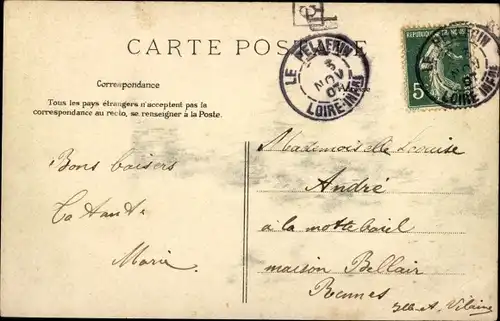 CARTE POSTALE
LE PELLERIN
3
NOV
07
LOIRE-INFRE
5
Correspondance
Tous les pays étrangers n'acceptent pas la
correspondance au recto, se renseigner à la Poste.
Bons baisers
Ta tante
Marie
Mademoiselle Louise
André
à la motte baril
maison Bellair
Rennes
Ille-et-Vilaine